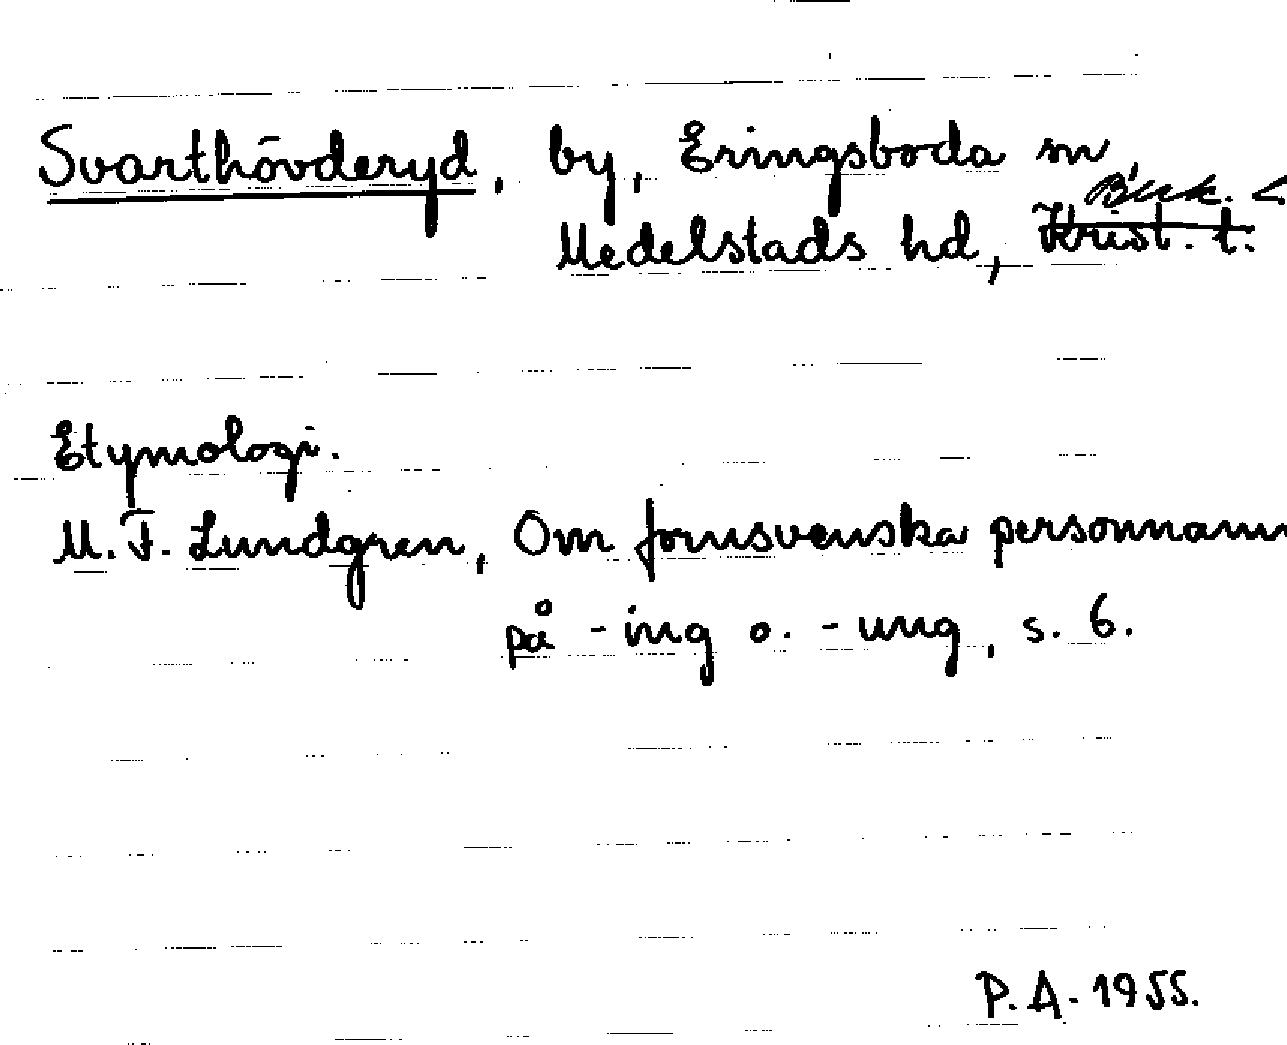 Svarthövderyd, by, Eringsboda sn,
Blek. l
Medelstads hd, Krist. l.
Etymologi.
M. F. Lundgren, Om fornsvenska personnamn
på -ing o. -ung, s. 6.
P. A. 1955.